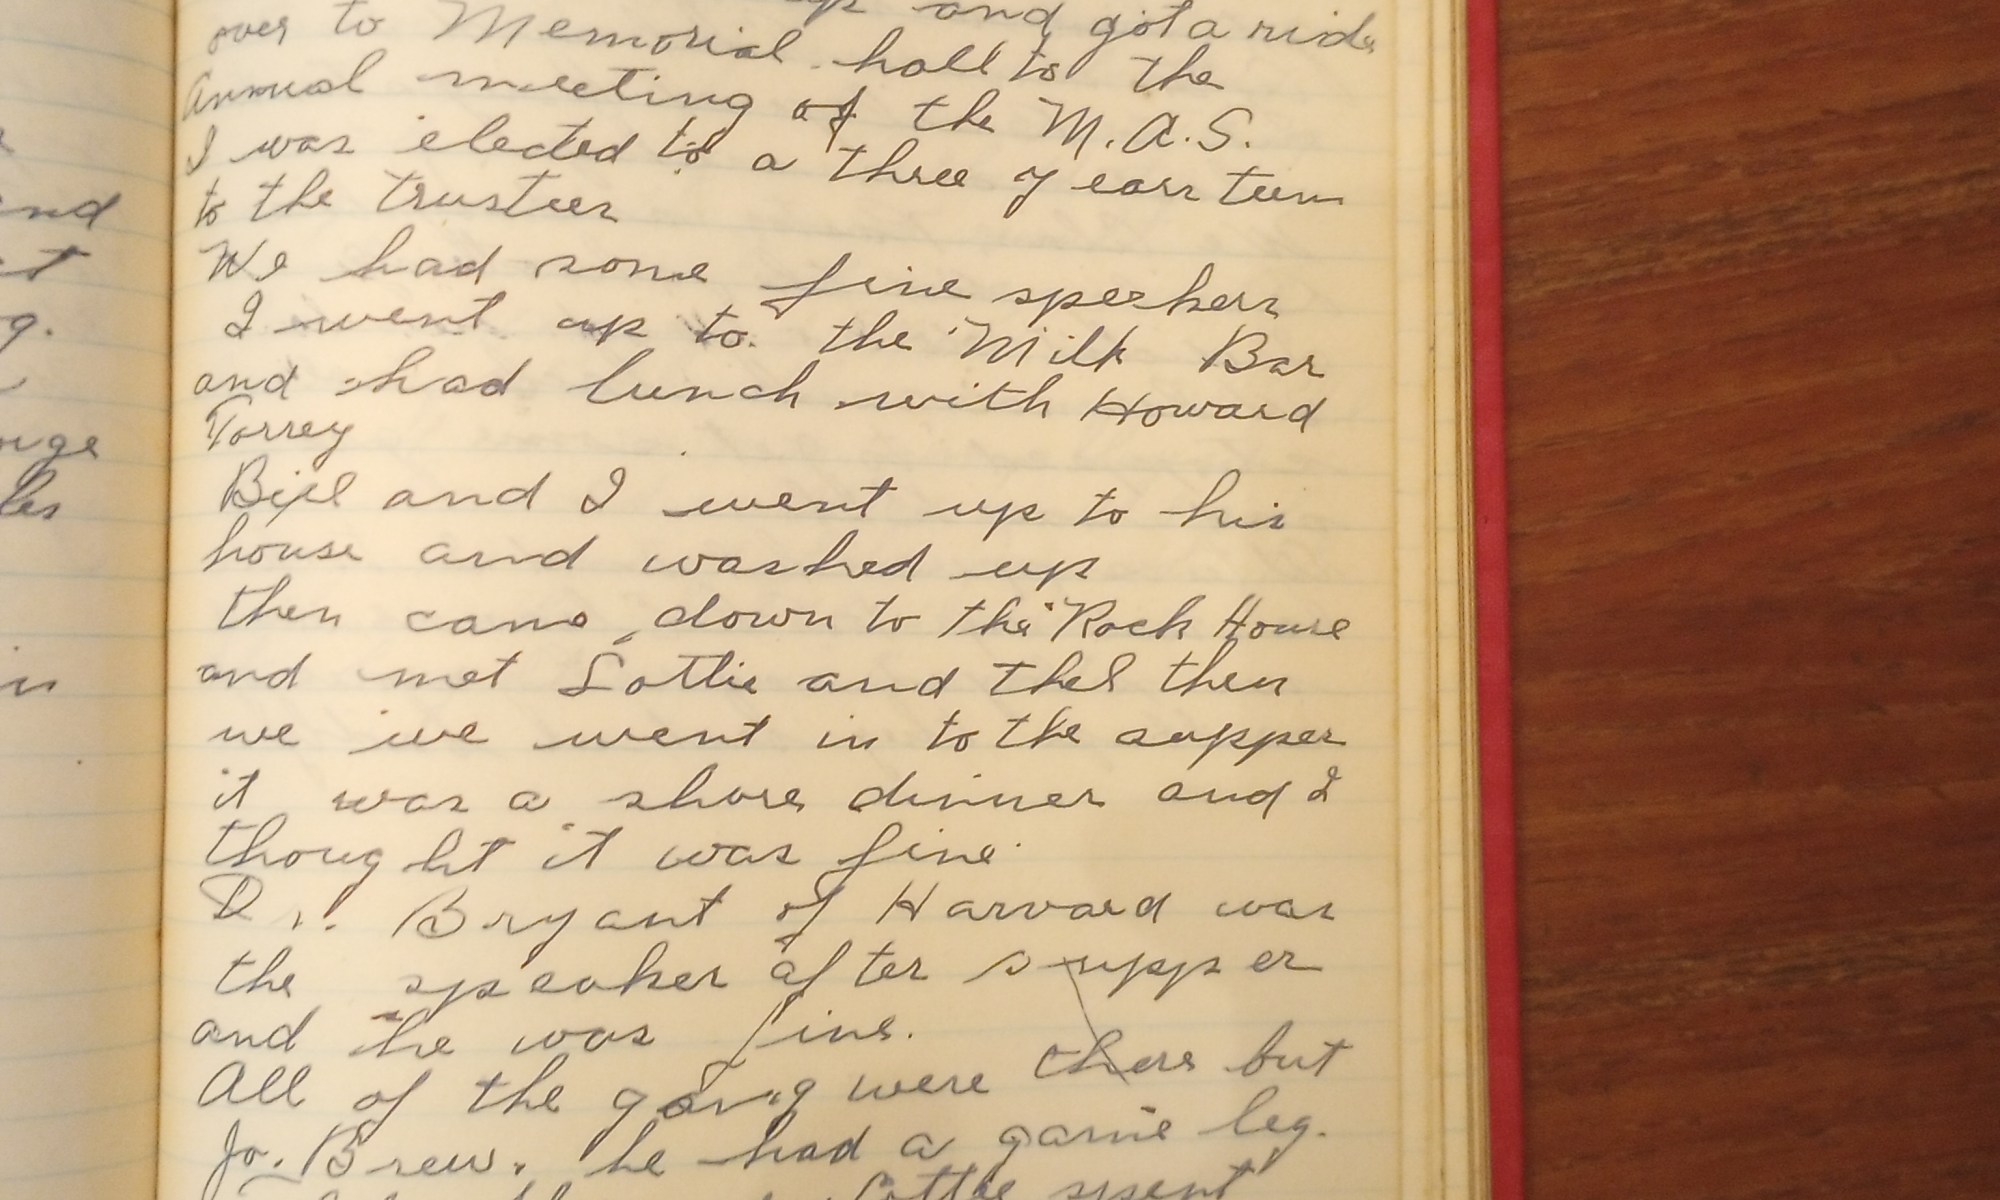 up and got a ride
over to Memorial hall to the
Annual meeting of the M.A.S.
I was elected to a three years term
to the trustees
We had some fine speekers
I went up to the Milk Bar
and had lunch with Howard
Torrey
Bill and I went up to his
house and washed up
then came down to the Rock House
and met Lottie and thel then
we we went in to the supper
it was a shore dinner and I
thought it was fine
Dr. Bryant of Harvard was
the speaker after supper
and he was fine.
All of the gang were there but
Jo. Brew. he had a game leg.
Lottie spent